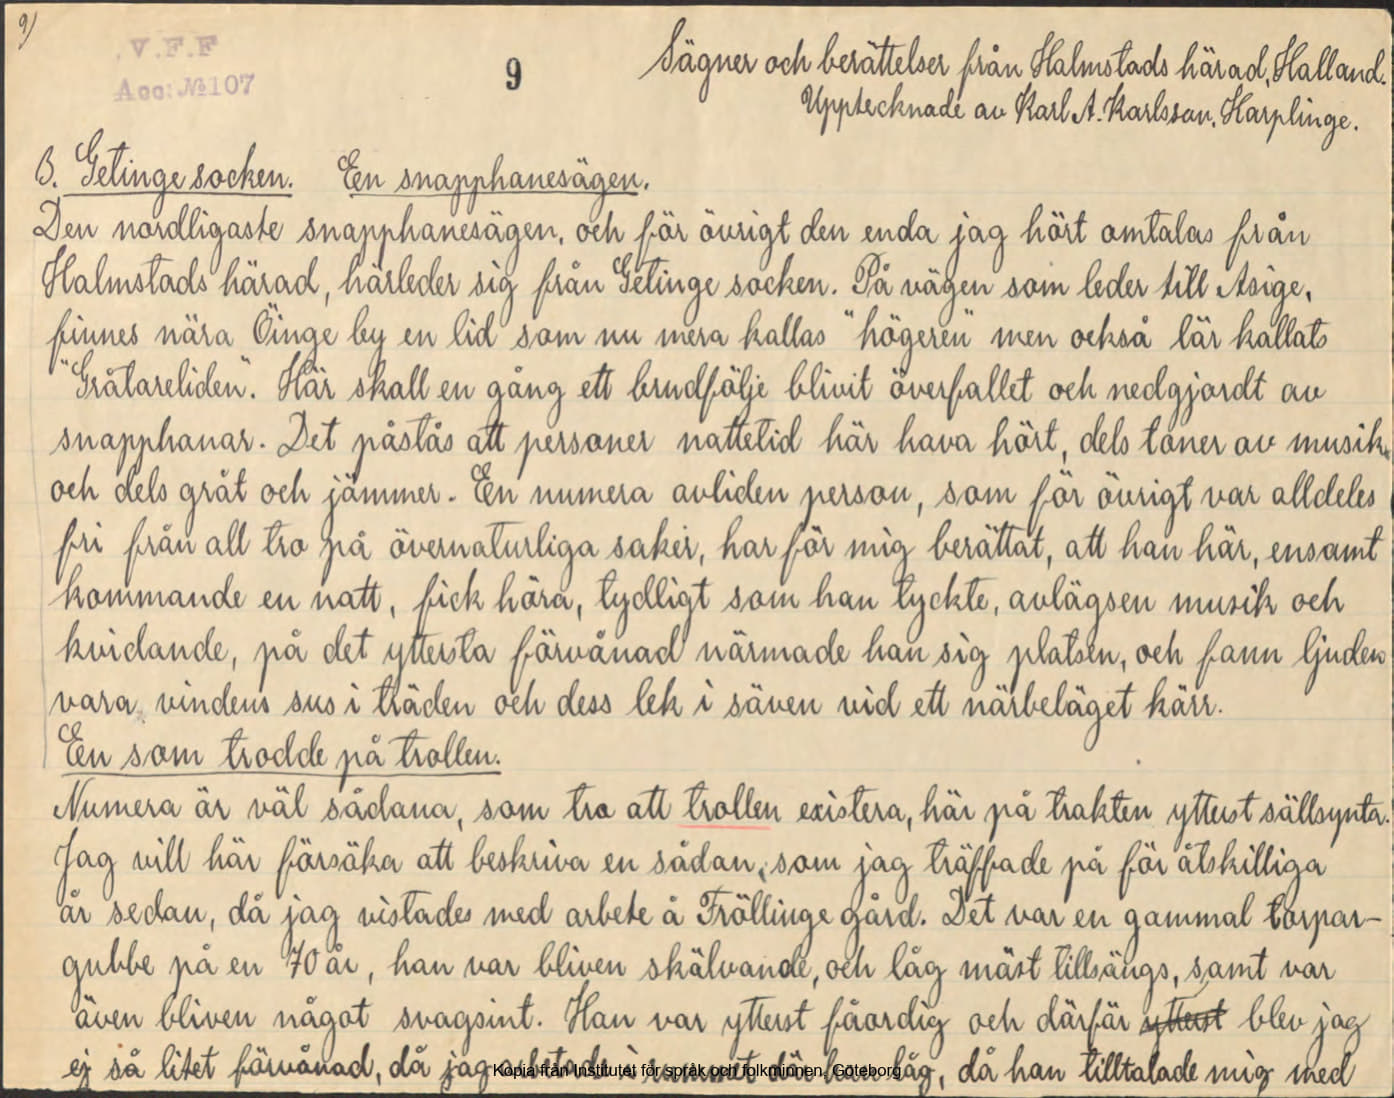 9)
V.F.F
Acc: №107
9
Sägner och berättelser från Halmstads härad, Halland.
Upptecknade av Karl A. Karlsson, Harplinge.
B. Getinge socken. En snapphanesägen.
Den nordligaste snapphanesägen, och för övrigt den enda jag hört omtalas från
Halmstads härad, härleder sig från Getinge socken. På vägen som leder till Asige,
finnes nära Öinge by en lid som nu mera kallas "högeren" men också lär kallats
"Gråtareliden". Här skall en gång ett brudfölje blivit överfallet och nedgjordt av
snapphanar. Det påstås att personer nattetid här hava hört, dels toner av musik
och dels gråt och jämmer. En numera avliden person, som för övrigt var alldeles
fri från all tro på övernaturliga saker, har för mig berättat, att han här, ensamt
kommande en natt, fick höra, tydligt som han tyckte, avlägsen musik och
kvidande, på det yttersta förvånad närmade han sig platsen, och fann ljuden
vara vindens sus i träden och dess lek i säven vid ett närbeläget kärr.
En som trodde på trollen.
Numera är väl sådana, som tro att trollen existera, här på trakten ytterst sällsynta.
Jag vill här försöka att beskriva en sådan, som jag träffade på för åtskilliga
år sedan, då jag vistades med arbete å Fröllinge gård. Det var en gammal torpar-
gubbe på en 70 år, han var bliven skälvande, och låg mäst tillsängs, samt var
även bliven något svagsint. Han var ytterst fåordig och därför ytterst blev jag
ej så litet förvånad, då jag arbetade i rummet där han låg, då han tilltalade mig med
Kopia från Institutet för språk och folkminnen, Göteborg